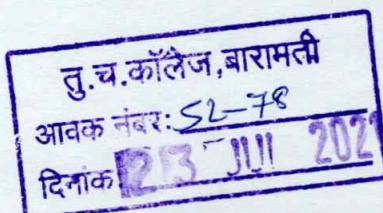 तु.च.कॉलेज,बारामती
आवक नंबर: S2-78
दिनांक 23 JUL 2021